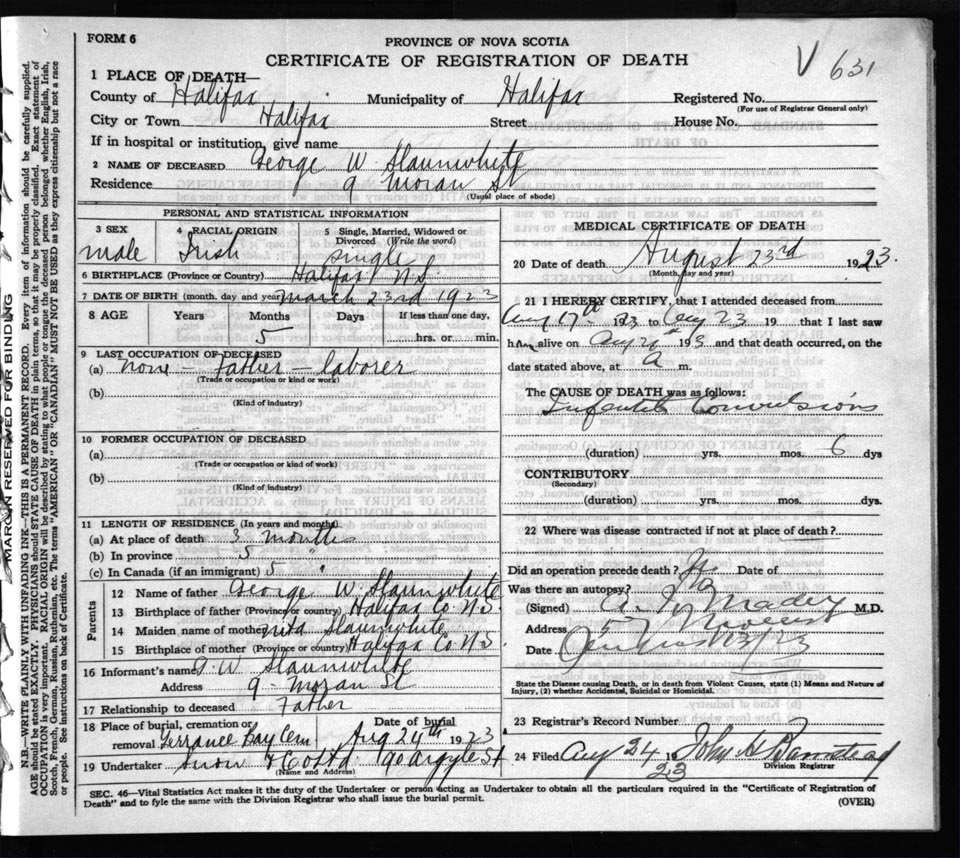 FORM 6
PROVINCE OF NOVA SCOTIA
CERTIFICATE OF REGISTRATION OF DEATH
V 631
1 PLACE OF DEATH—
County of Halifax Municipality of Halifax Registered No.
(For use of Registrar General only)
City or Town Halifax Street House No.
If in hospital or institution, give name
2 NAME OF DECEASED George W. Slaunwhite
Residence 9 Moran St
(Usual place of abode)
PERSONAL AND STATISTICAL INFORMATION
3 SEX 4 RACIAL ORIGIN 5 Single, Married, Widowed or Divorced (Write the word)
male Irish single
6 BIRTHPLACE (Province or Country) Halifax N.S.
7 DATE OF BIRTH (month, day and year) March 23rd 1923
8 AGE Years Months Days If less than one day,
5 hrs. or min.
9 LAST OCCUPATION OF DECEASED
(a) none – Father – laborer
(Trade or occupation or kind of work)
(b)
(Kind of industry)
10 FORMER OCCUPATION OF DECEASED
(a)
(Trade or occupation or kind of work)
(b)
(Kind of industry)
11 LENGTH OF RESIDENCE (In years and months)
(a) At place of death 3 months
(b) In province 5 "
(c) In Canada (if an immigrant) 5 "
Parents
12 Name of father George W. Slaunwhite
13 Birthplace of father (Province or country) Halifax Co N.S.
14 Maiden name of mother Slaunwhite
15 Birthplace of mother (Province or country) Halifax Co N.S.
16 Informant's name G. W. Slaunwhite
Address 9 – Moran St
17 Relationship to deceased Father
18 Place of burial, cremation or removal Terrance Bay Cem Date of burial Aug 24th 1923
19 Undertaker Snow & Co Ltd 90 Argyle St
(Name and Address)
MEDICAL CERTIFICATE OF DEATH
20 Date of death August 23rd 1923.
(Month, day and year)
21 I HEREBY CERTIFY, that I attended deceased from
Aug 17th 1923 to Aug 23 19 that I last saw
him alive on Aug 193 and that death occurred, on the
date stated above, at a m.
The CAUSE OF DEATH was as follows:
Infantile Convulsions
(duration) yrs. mos. 6 dys
CONTRIBUTORY
(Secondary)
(duration) yrs. mos. dys.
22 Where was disease contracted if not at place of death?
Did an operation precede death? No Date of
Was there an autopsy?
(Signed) Mader M.D.
Address 57 Morris
Date 23
State the Disease causing Death, or in death from Violent Causes, state (1) Means and Nature of
Injury, (2) whether Accidental, Suicidal or Homicidal.
23 Registrar's Record Number
24 Filed Aug 24 1923 John H Barnstead
Division Registrar
SEC. 46—Vital Statistics Act makes it the duty of the Undertaker or person acting as Undertaker to obtain all the particulars required in the "Certificate of Registration of
Death" and to fyle the same with the Division Registrar who shall issue the burial permit.
(OVER)
MARGIN RESERVED FOR BINDING
N.B.—WRITE PLAINLY WITH UNFADING INK—THIS IS A PERMANENT RECORD. Every item of information should be carefully supplied.
AGE should be stated EXACTLY. PHYSICIANS should STATE CAUSE OF DEATH in plain terms, so that it may be properly classified. Exact statement of
OCCUPATION is very important. RACIAL ORIGIN will be described by stating to what people or tongue the deceased person belonged whether English, Irish,
Scotch, French, German, Russian, Ruthenian, etc. The terms "AMERICAN" OR "CANADIAN" MUST NOT BE USED as they express citizenship but not a race
or people. See instructions on back of Certificate.